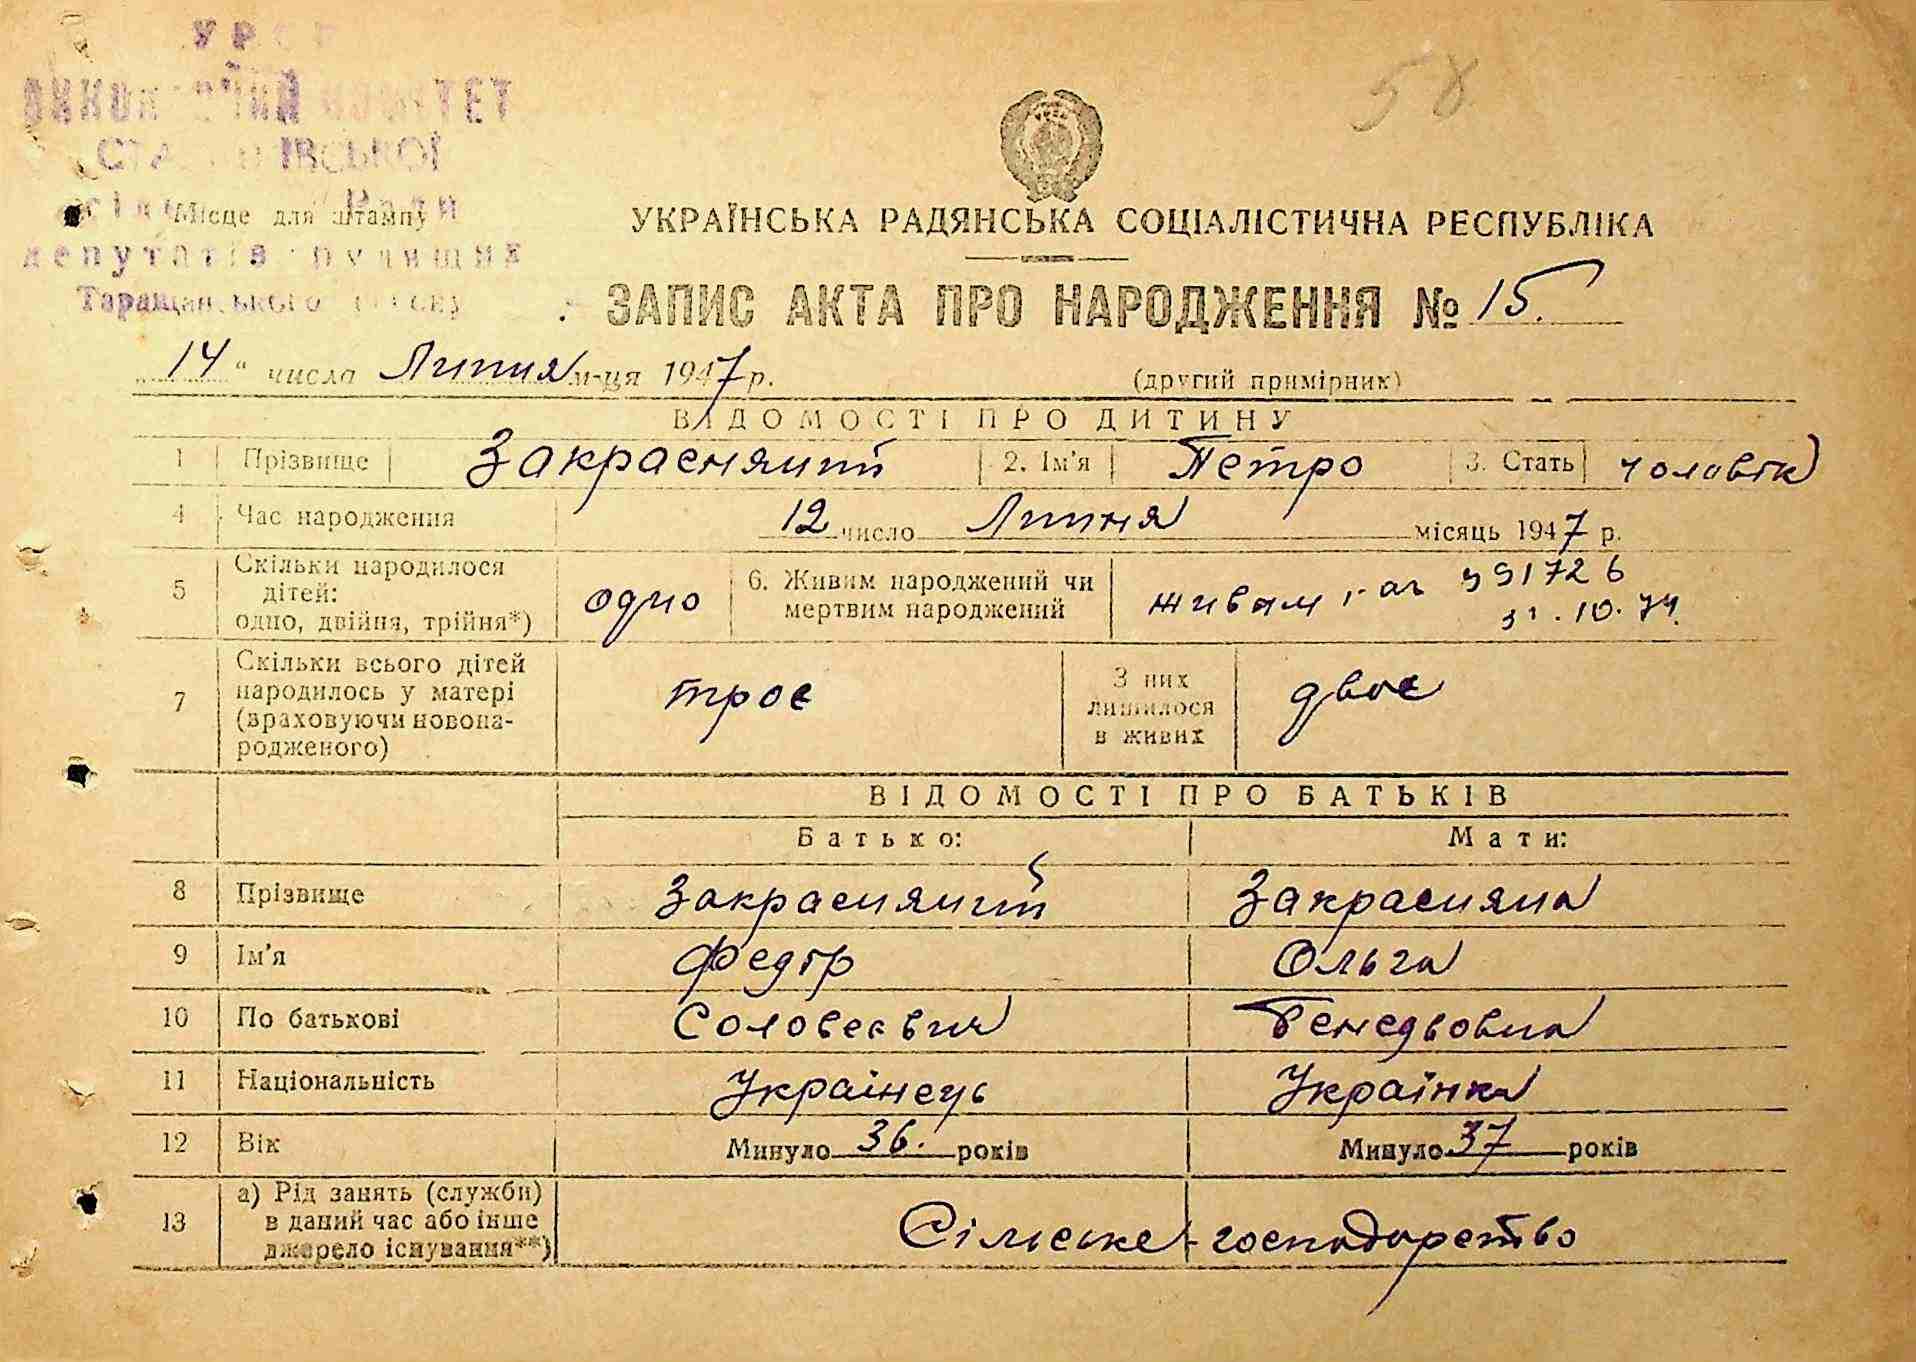 УРСР
ВИКОНАВЧИЙ КОМІТЕТ
ІВСЬКОЇ
Ради
Місце для штампу
депутатів трудящих
Таращанського
58
УКРАЇНСЬКА РАДЯНСЬКА СОЦІАЛІСТИЧНА РЕСПУБЛІКА
ЗАПИС АКТА ПРО НАРОДЖЕННЯ № 15.
14 " числа Липня м-ця 1947 р. (другий примірник)
ВІДОМОСТІ ПРО ДИТИНУ
1 Прізвище Закрасняний 2. Ім'я Петро 3. Стать чоловік
4 Час народження 12 число Липня місяць 1947 р.
5 Скільки народилося дітей: одно, двійня, трійня*) одно 6. Живим народжений чи мертвим народжений живим 991726
.10.74.
7 Скільки всього дітей народилось у матері (враховуючи новона-родженого) троє З них лишилося в живих двоє
ВІДОМОСТІ ПРО БАТЬКІВ
Батько: Мати:
8 Прізвище Закрасняний Закрасняна
9 Ім'я Федір Ольга
10 По батькові Соловеєвич
11 Національність Українець Українка
12 Вік Минуло 36. років Минуло 37 років
13 а) Рід занять (служби) в даний час або інше джерело існування**) Сільське господарство